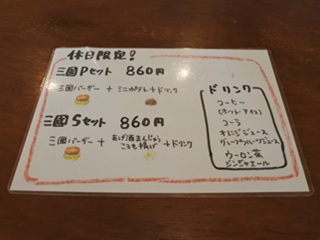 休日限定!
三国Pセット 860円
三国バーガー + ミニカタラーナ + ドリンク
三国Sセット 860円
三国バーガー + あげ酒まんじゅう + ドリンク
こども揚げ
ドリンク
コーヒー
(ホット・アイス)
コーラ
オレンジジュース
グレープフルーツジュース
ウーロン茶
ジンジャエール